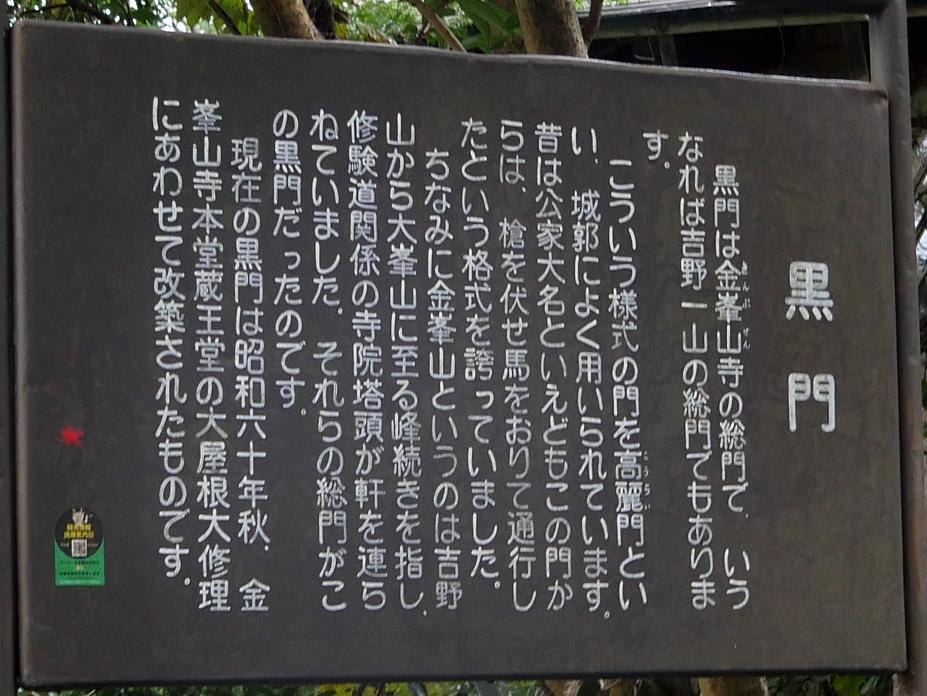 黒門
黒門は金峯山寺の総門で、いう
きんぷせん
なれば吉野一山の総門でもありま
す。
こういう様式の門を高麗門とい
こうらい
い、城郭によく用いられています。
昔は公家大名といえどもこの門か
らは、槍を伏せ馬をおりて通行し
たという格式を誇っていました。
ちなみに金峯山というのは吉野
山から大峯山に至る峰続きを指し、
修験道関係の寺院塔頭が軒を連ら
ねていました。それらの総門がこ
の黒門だったのです。
現在の黒門は昭和六十年秋、金
峯山寺本堂蔵王堂の大屋根大修理
にあわせて改築されたものです。